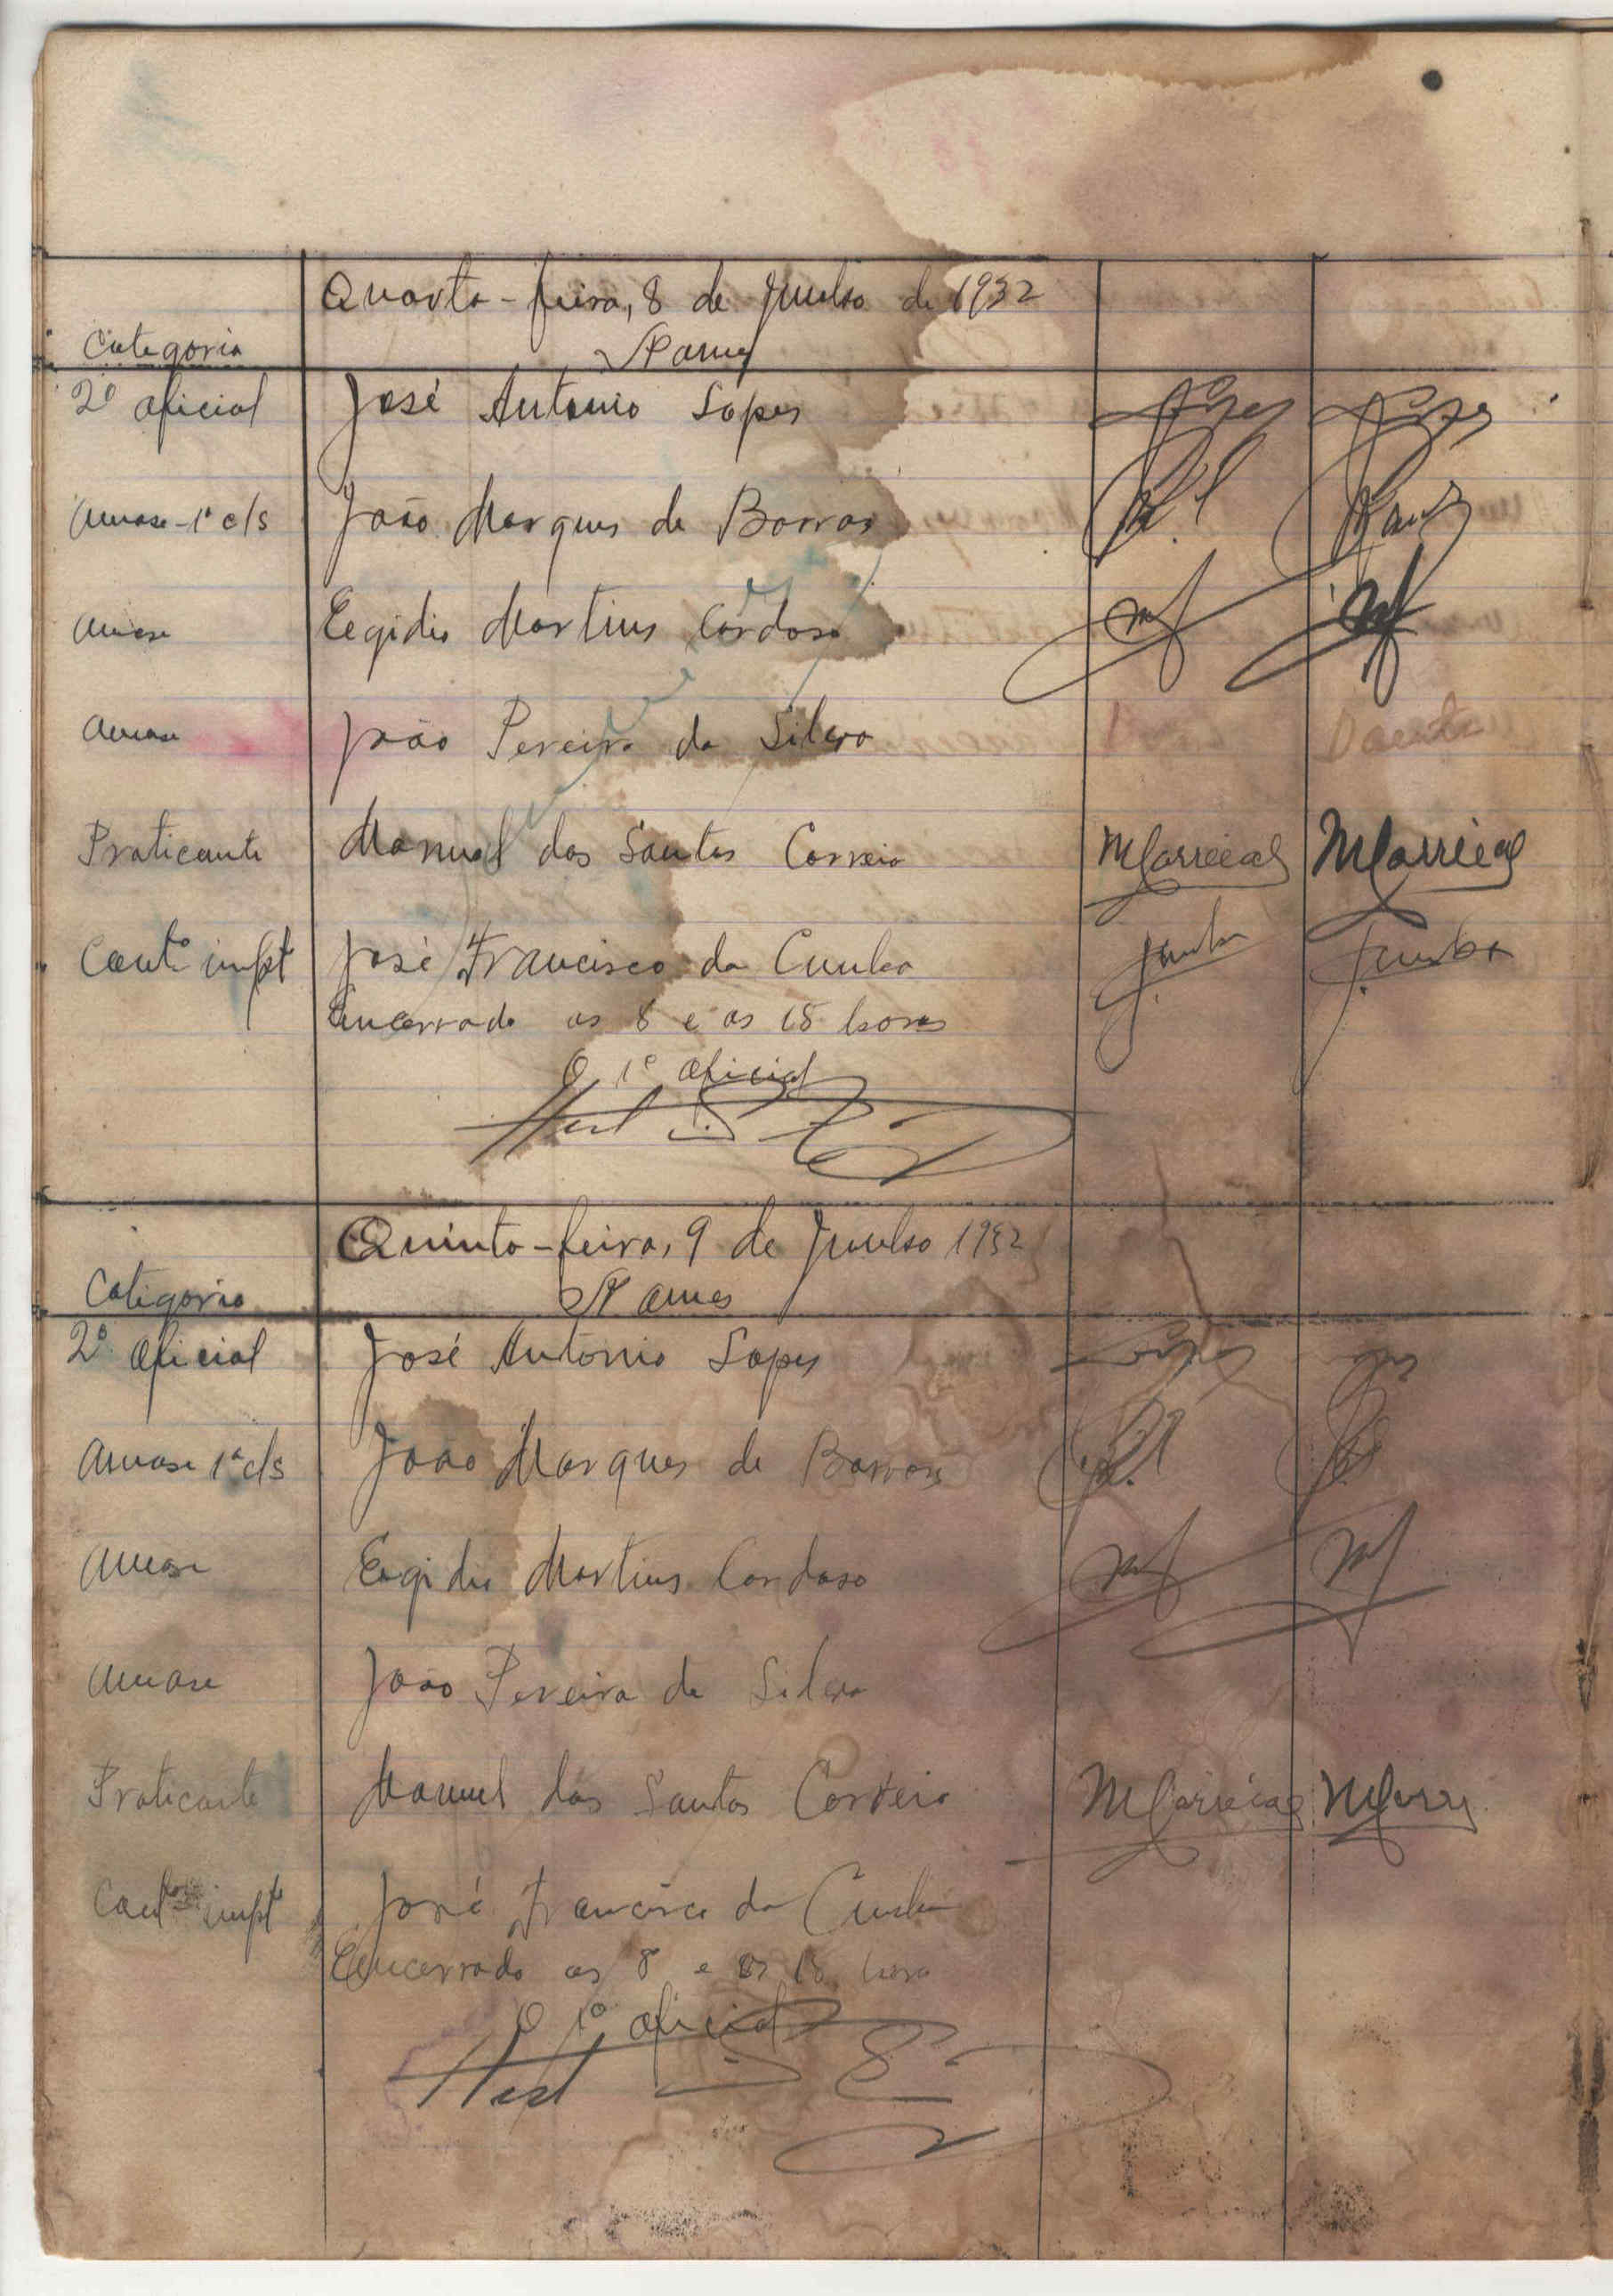 Quarta-feira, 8 de Junho de 1932
Categoria Nomes
2º oficial José Antonio Lopes Lopes Lopes
1ª cls João Marques de Barros
Eegidio Martins Cardoso
João Pereira da Silva Doente
Praticante Manuel dos Santos Correia MCorreia MCorreia
Contº impt José Francisco da Cunha JCunha JCunha
Encerrado as 8 e as 15 horas
O 1º oficial
Quinta-feira, 9 de Junho 1932
Categoria Nomes
2º Oficial José Antonio Lopes Lopes
1ª cls João Marques de Barros
Eegidio Martins Cardoso
João Pereira da Silva
Praticante Manuel dos Santos Correia MCorreia
Contº impt José Francisco da Cunha
Encerrado as 8 e as 15 horas
O 1º oficial